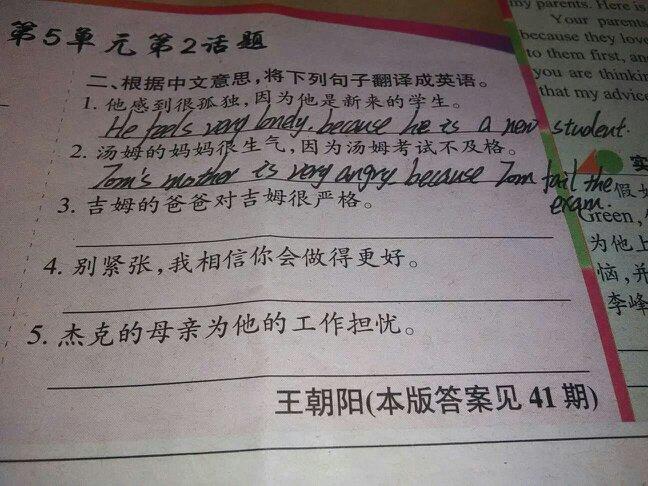 第5单元第2话题
二、根据中文意思,将下列句子翻译成英语。
1. 他感到很孤独,因为他是新来的学生。
He feels very londy. because he is a new student.
2. 汤姆的妈妈很生气,因为汤姆考试不及格。
Tom's mother is very angry because Tom fail the
exam.
3. 吉姆的爸爸对吉姆很严格。
4. 别紧张,我相信你会做得更好。
5. 杰克的母亲为他的工作担忧。
王朝阳(本版答案见41期)
my parents. Here is
Your parents
because they love
to them first, an
you are thinkin
that my advice
实
假如
Green,
为他上
恼,并
李峰